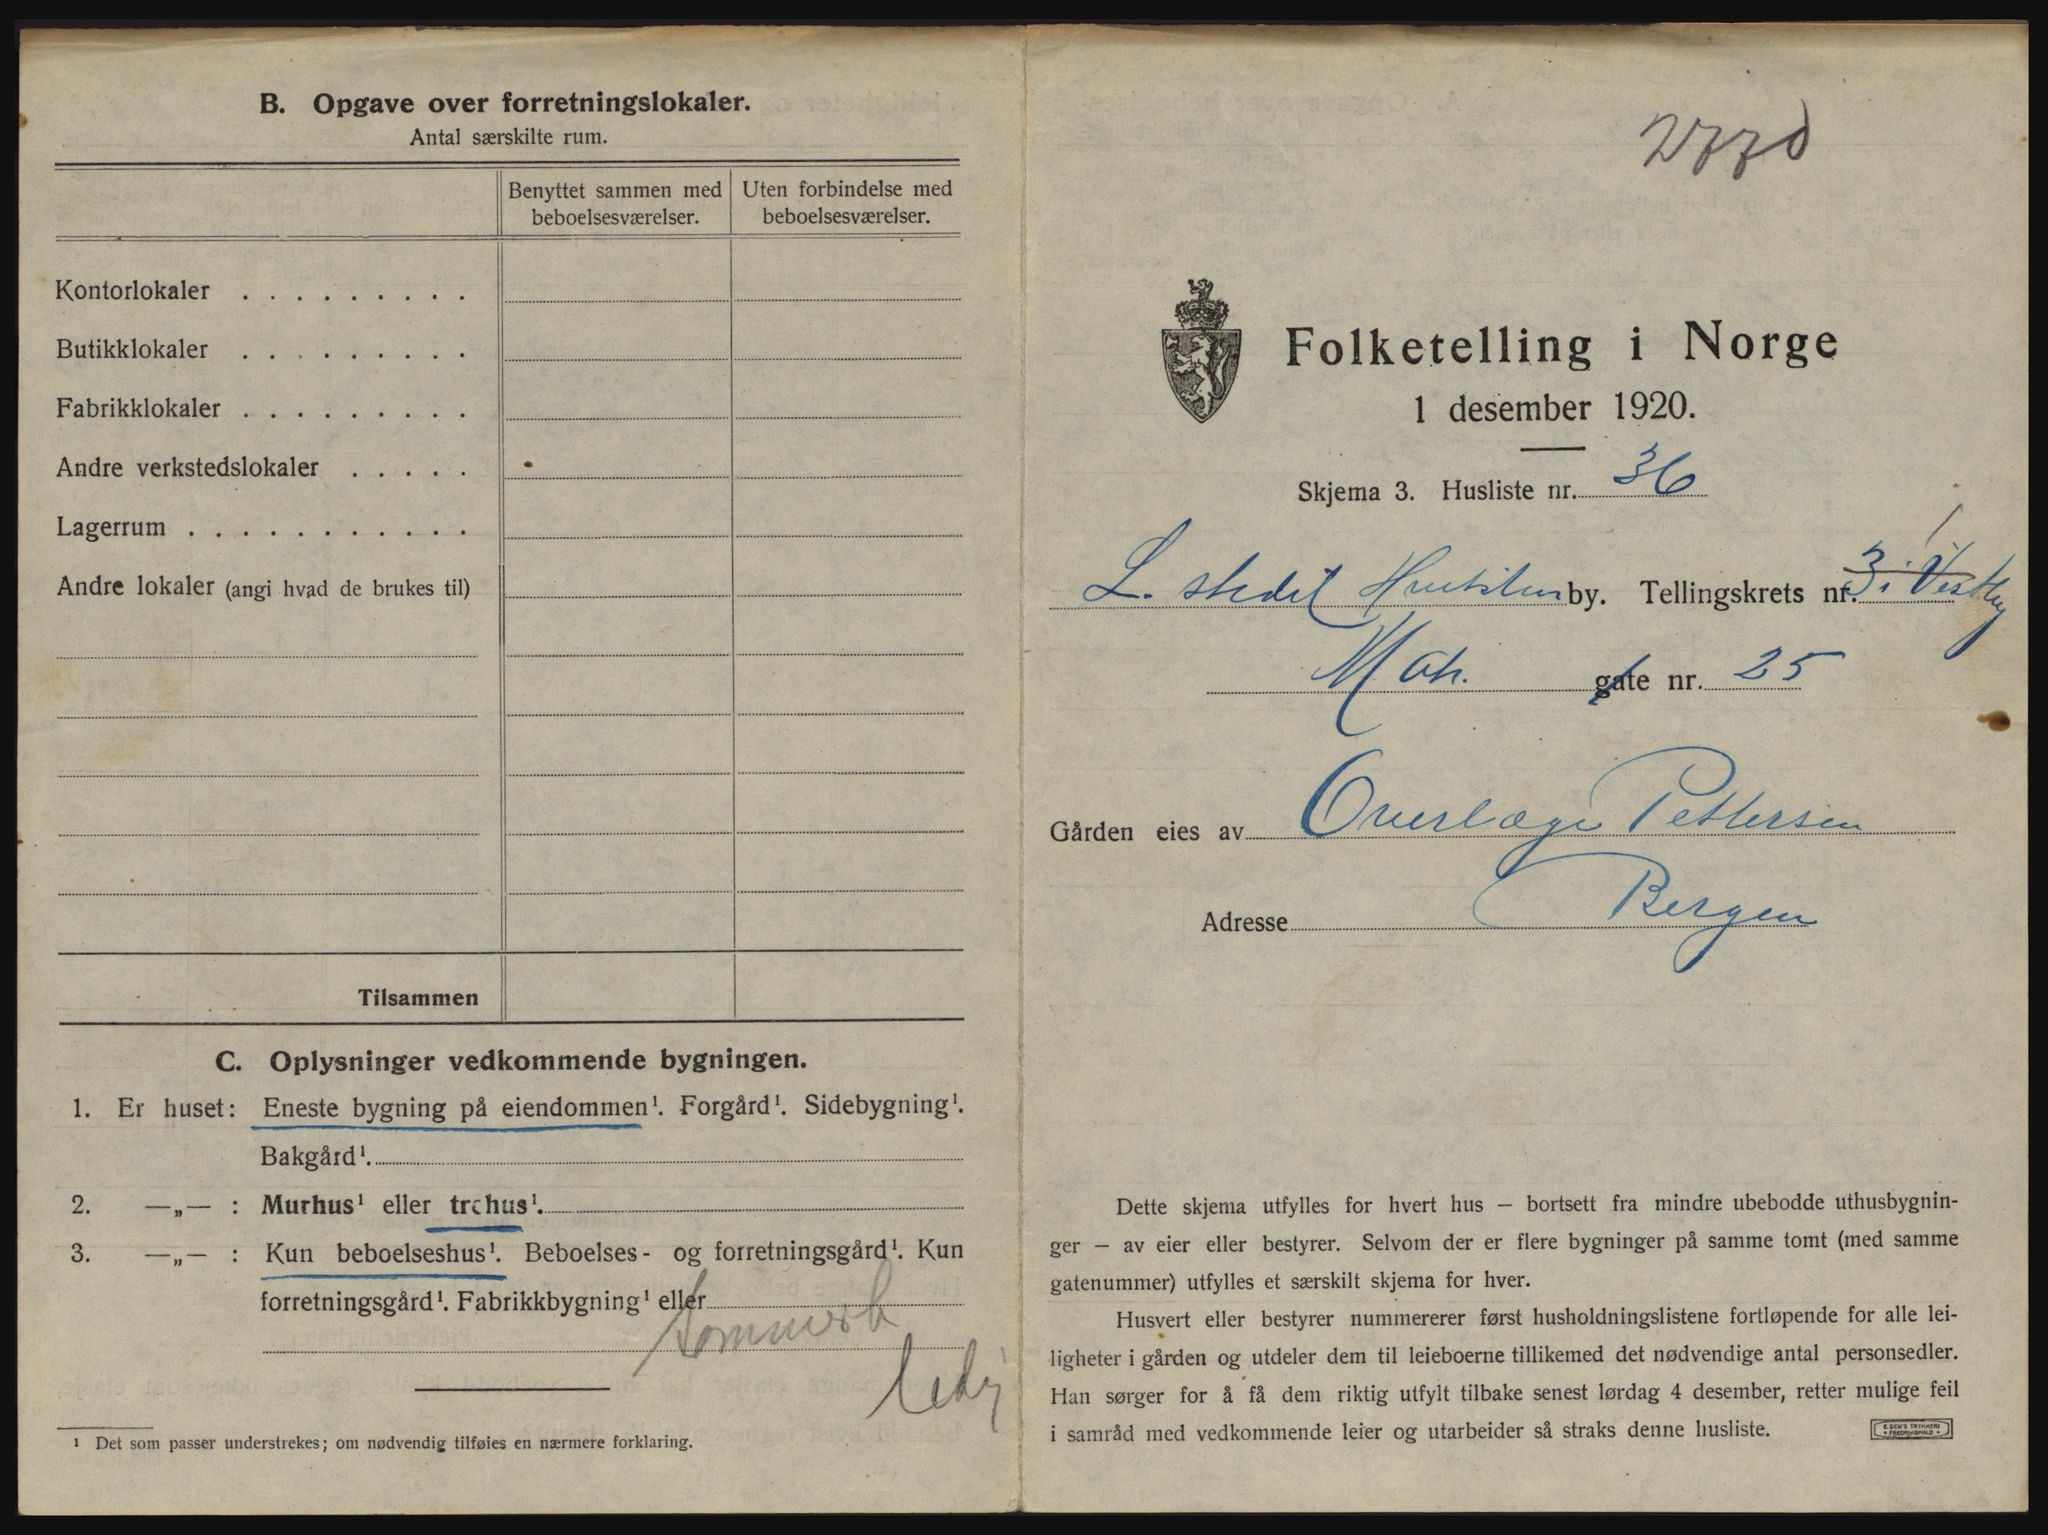 B. Opgave over forretningslokaler.
Antal særskilte rum.
Benyttet sammen med beboelsesværelser.
Uten forbindelse med beboelsesværelser.
Kontorlokaler . . . . . . . . .
Butikklokaler . . . . . . . . .
Fabrikklokaler . . . . . . . . .
Andre verkstedslokaler . . . . .
Lagerrum . . . . . . . . . . .
Andre lokaler (angi hvad de brukes til)
Tilsammen
C. Oplysninger vedkommende bygningen.
1. Er huset: Eneste bygning på eiendommen¹. Forgård¹. Sidebygning¹.
Bakgård¹.
2. —„— : Murhus¹ eller trehus¹.
3. —„— : Kun beboelseshus¹. Beboelses- og forretningsgård¹. Kun
forretningsgård¹. Fabrikkbygning¹ eller
Sommerb
ledig
¹ Det som passer understrekes; om nødvendig tilføies en nærmere forklaring.
2770
Folketelling i Norge
1 desember 1920.
Skjema 3. Husliste nr. 36
1
L. stedet Hvitsten by. Tellingskrets nr. 3 i Vestby
Mat. gate nr. 25
Gården eies av Overlæge Pettersen
Adresse Bergen
Dette skjema utfylles for hvert hus — bortsett fra mindre ubebodde uthusbygnin-
ger — av eier eller bestyrer. Selvom der er flere bygninger på samme tomt (med samme
gatenummer) utfylles et særskilt skjema for hver.
Husvert eller bestyrer nummererer først husholdningslistene fortløpende for alle lei-
ligheter i gården og utdeler dem til leieboerne tillikemed det nødvendige antal personsedler.
Han sørger for å få dem riktig utfylt tilbake senest lørdag 4 desember, retter mulige feil
i samråd med vedkommende leier og utarbeider så straks denne husliste.
E. SEM'S TRYKKERI
FREDRIKSHALD